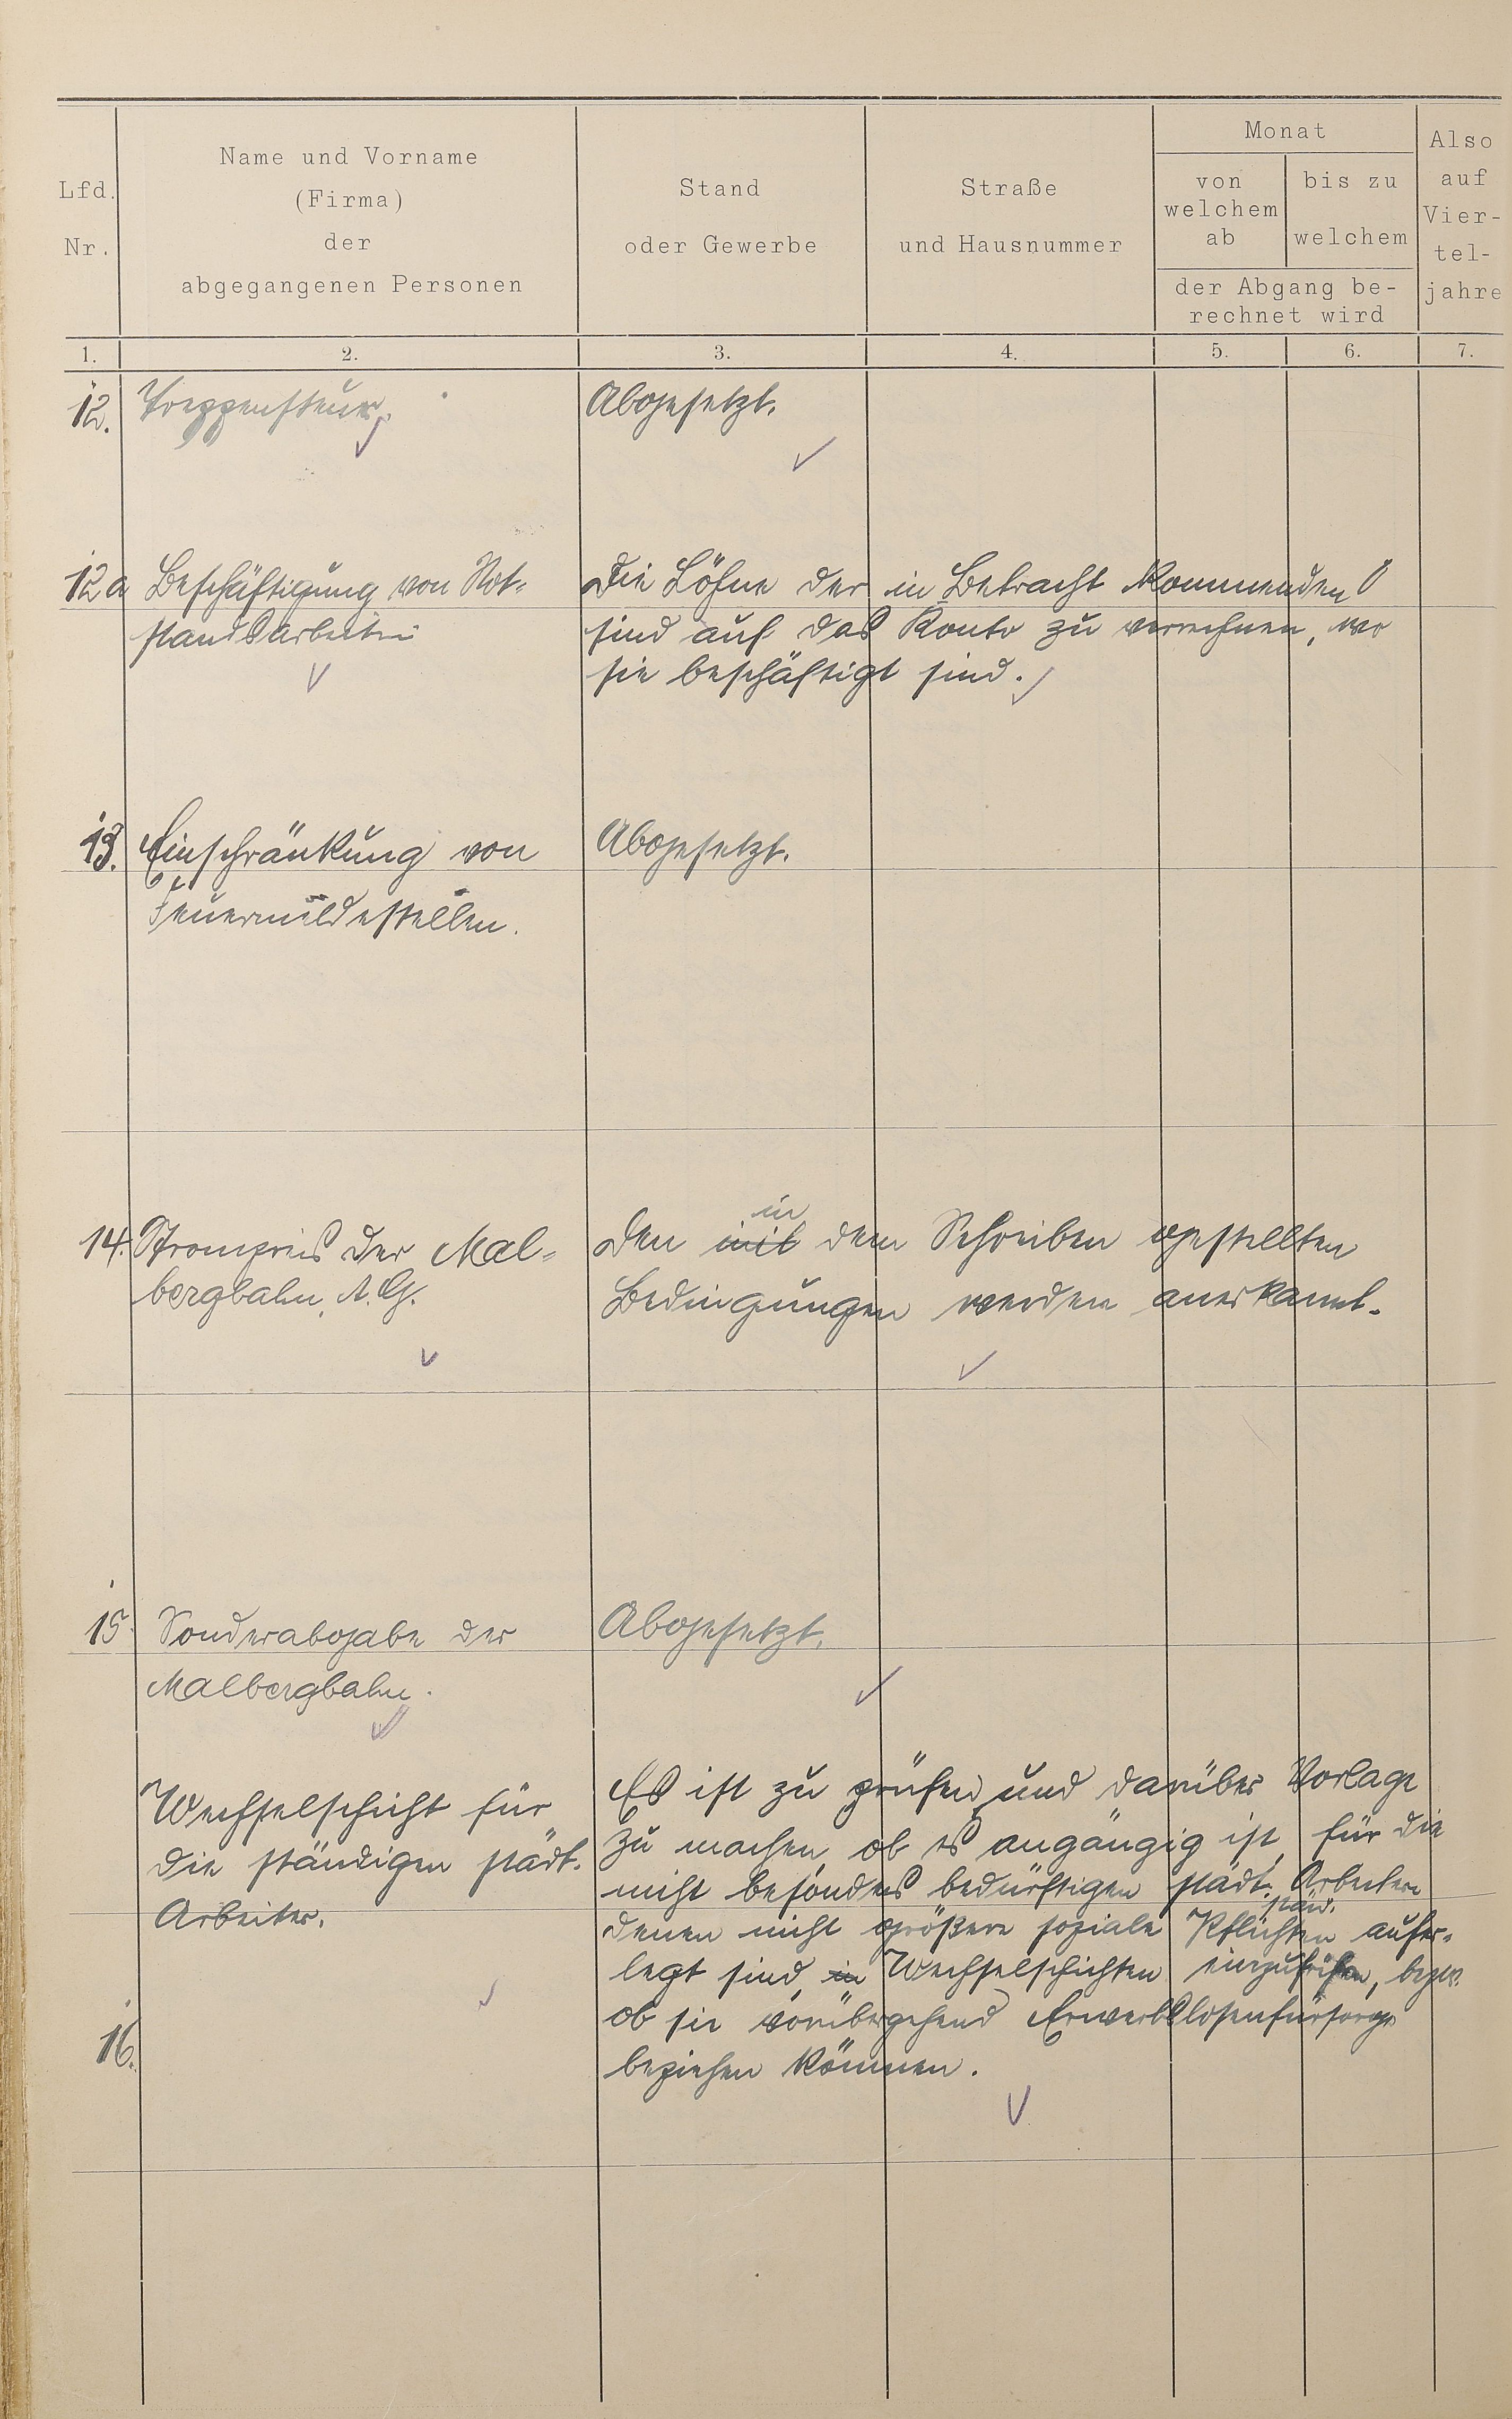 Lfd. Nr.
Name und Vorname
(Firma)
der
abgegangenen Personen
Stand
oder Gewerbe
Straße
und Hausnummer
Monat
von welchem ab
bis zu welchem
der Abgang be-
rechnet wird
Also auf Vier-tel-jahre
1. 2. 3. 4. 5. 6. 7.
12. Treppensteuer. Abgesetzt.
12a Beschäftigung von Not=
standsarbeitern
Die Löhne der in Betracht kommenden
sind auf das Konto zu verrechnen, wo
sie beschäftigt sind.
13. Einschränkung von
Feuermeldestellen.
Abgesetzt.
14. Strompreis der Mal=
bergbahn, A.G.
in
Den mit dem Schreiben gestellten
Bedingungen werden anerkannt.
15. Sonderabgabe der
Malbergbahn.
Abgesetzt.
16.
Wechselschicht für
die ständigen städt.
Arbeiter.
Es ist zu prüfen und darüber Vorlage
zu machen, ob es angängig ist, für die
nicht besonders bedürftigen städt. Arbeitern
stän.
denen nicht größere soziale Pflichten aufer-
legt sind, in Wechselschichten bezw.
ob sie vorübergehend Erwerbslosenfürsorge
beziehen können.